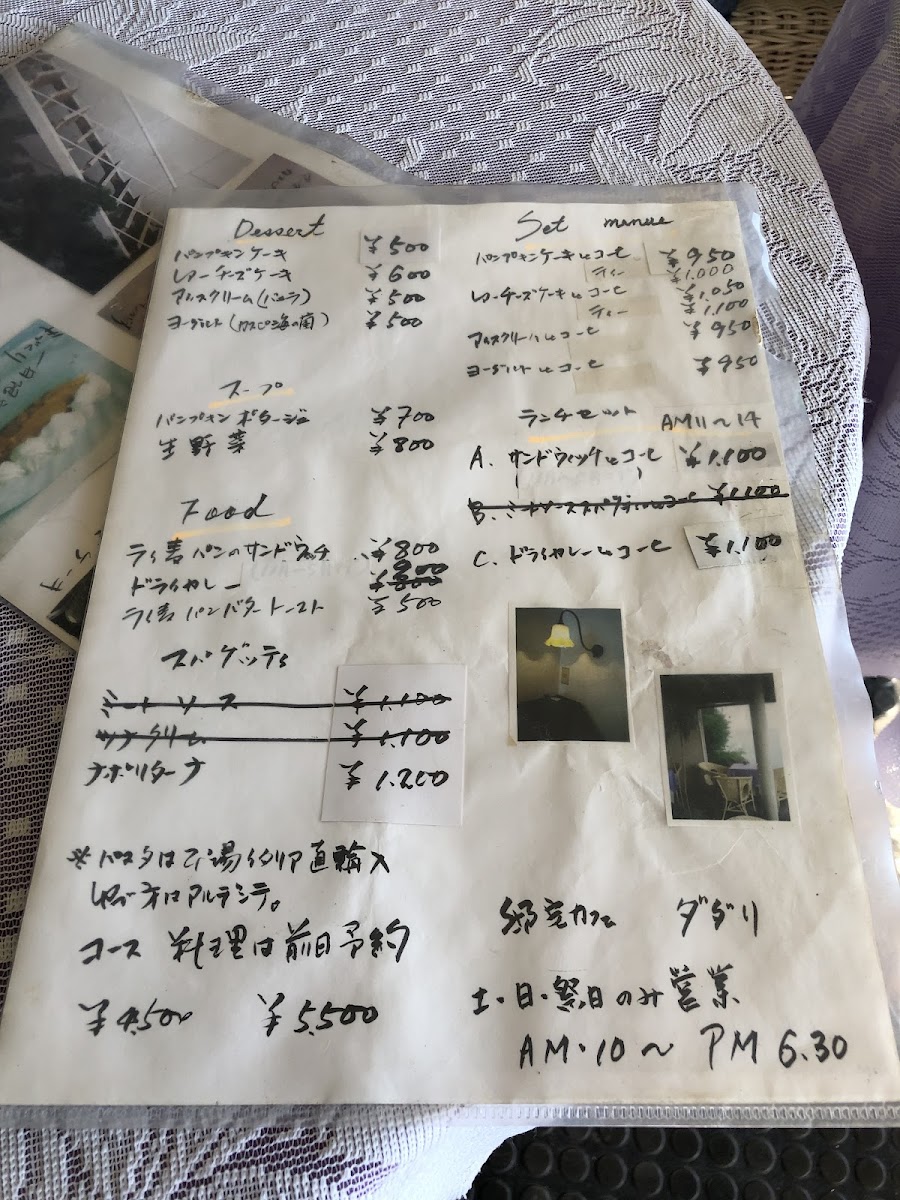 Dessert
パンプキンケーキ ¥500
レアーチーズケーキ ¥600
アイスクリーム(バニラ) ¥500
ヨーグルト(カスピ海の菌) ¥500
スープ
パンプキンポタージュ ¥700
生野菜 ¥800
Food
ライ麦パンのサンドウィッチ ¥800
ドライカレー
ライ麦パンバタートースト ¥500
スパゲッティ
ミートソース ¥1.100
ツナクリーム ¥1.100
ナポリターナ ¥1.200
※パスタは
アルデンテ。
コース料理は前日予約
¥4.500 ¥5.500
Set menue
パンプキンケーキとコーヒ ¥950
ティー ¥1.000
レアーチーズケーキとコーヒ ¥1.050
ティー ¥1.100
アイスクリームとコーヒ ¥950
ヨーグルトとコーヒ ¥950
ランチセット AM11〜14
A. サンドウィッチとコーヒ ¥1.100
B. ミートソーススパゲティとコーヒ ¥1.100
C. ドライカレーとコーヒ ¥1.100
カフェ ダダリ
土・日・祭日のみ営業
AM.10〜PM6.30